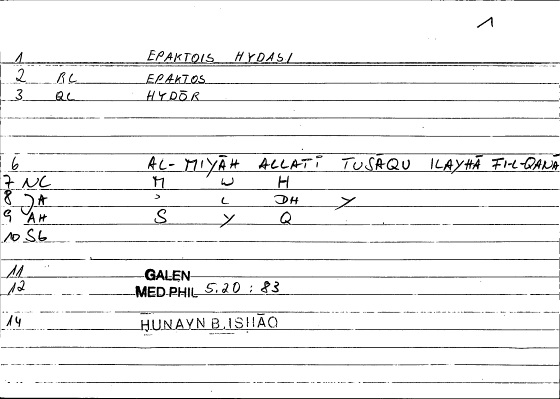 1
1 EPAKTOIS HYDASI
2 RL EPAKTOS
3 QL HYDŌR
6 AL-MIYĀH ALLATĪ TUSĀQU ILAYHĀ FI-L-QANĀ
7 NC M W H
8 JA ʾ L DH Y
9 AH S Y Q
10 SG
11 GALEN
12 MED PHIL 5.20 : 83
14 ḤUNAYN B. ISḤĀQ